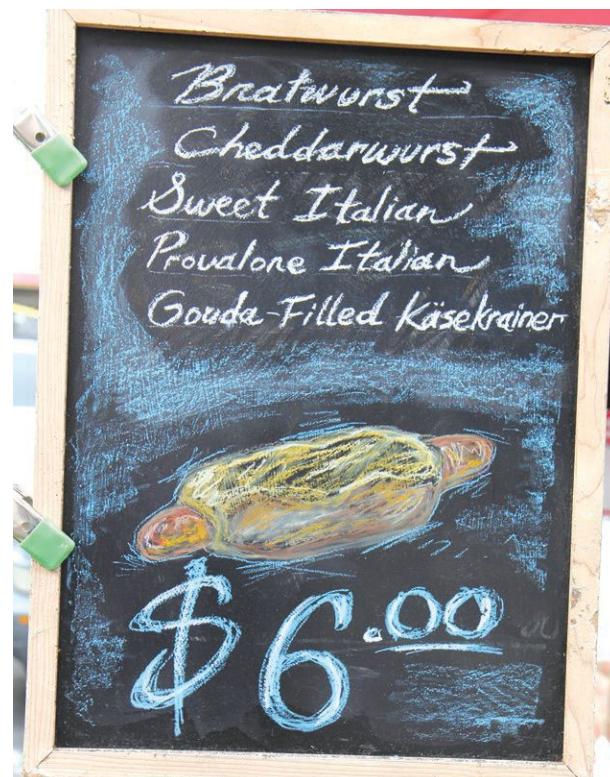 Bratwurst
Cheddarwurst
Sweet Italian
Provalone Italian
Gouda-Filled Käsekrainer
$6.00